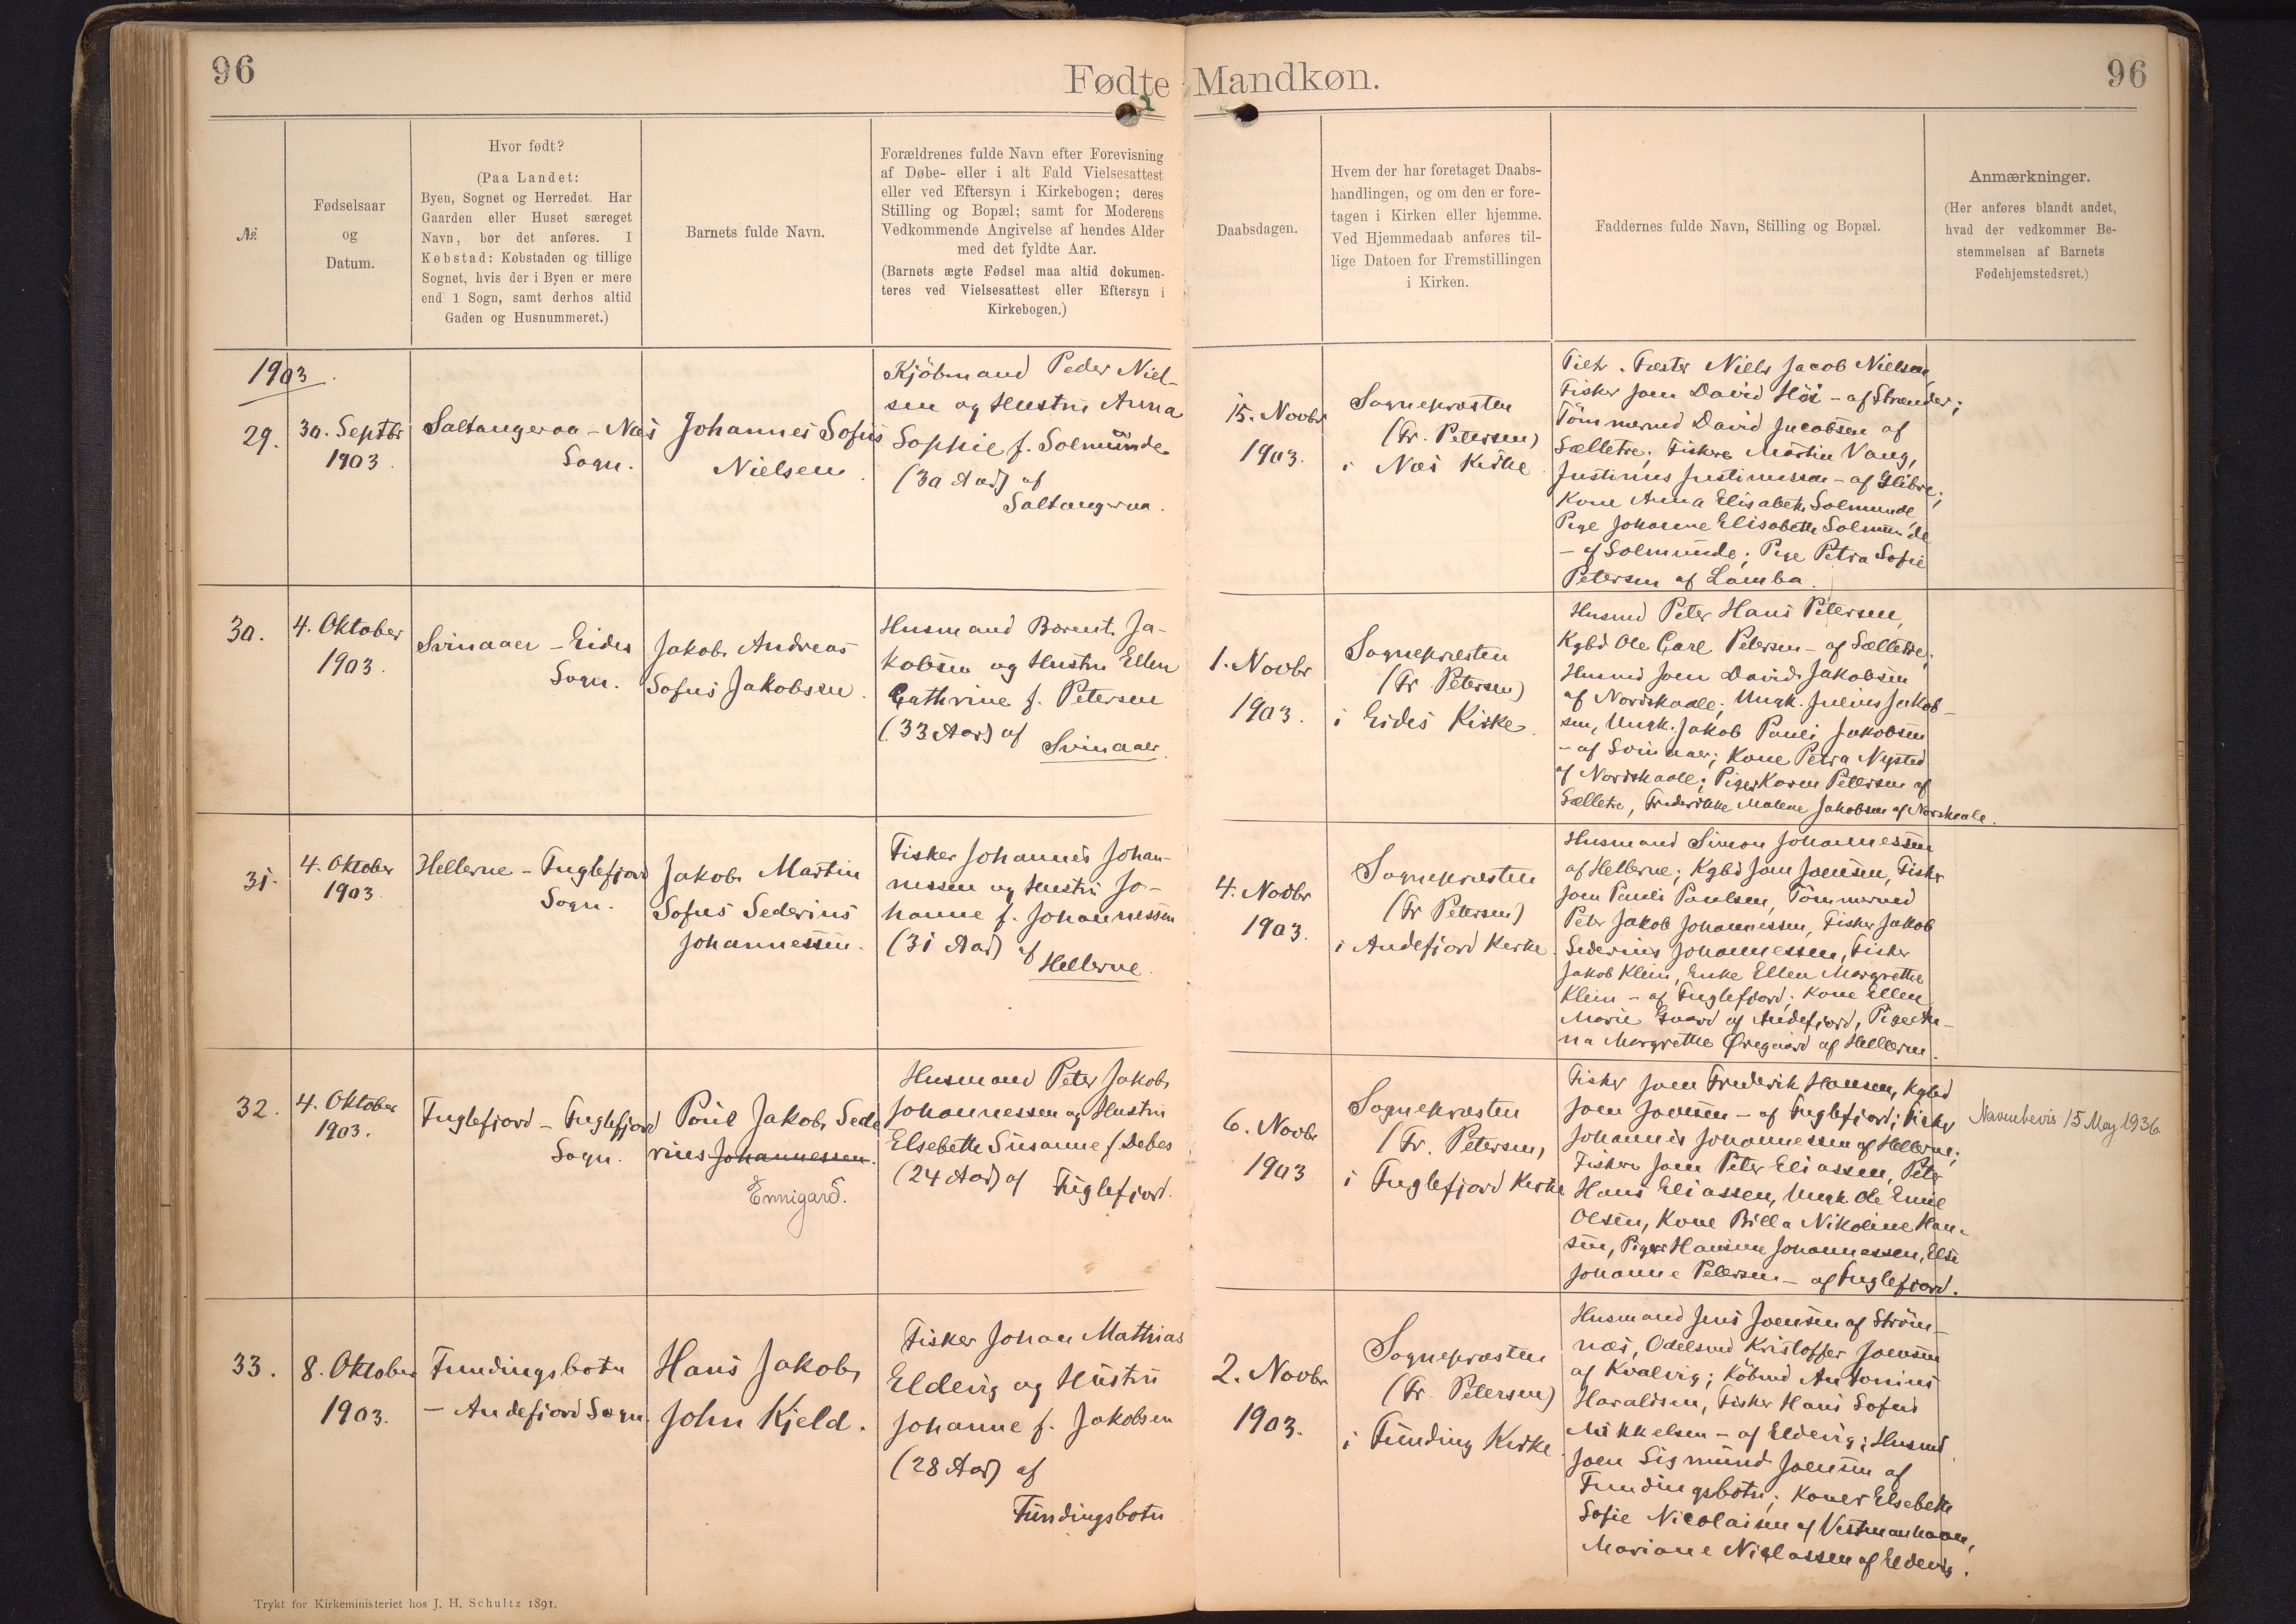 96
Fødte Mandkøn.
96
№
Fødselsaar
og
Datum.
Hvor født?
(Paa Landet:
Byen, Sognet og Herredet. Har
Gaarden eller Huset særeget
Navn, bør det anføres. I
Købstad: Købstaden og tillige
Sognet, hvis der i Byen er mere
end 1 Sogn, samt derhos altid
Gaden og Husnummeret.)
Barnets fulde Navn.
Forældrenes fulde Navn efter Forevisning
af Døbe- eller i alt Fald Vielsesattest
eller ved Eftersyn i Kirkebogen; deres
Stilling og Bopæl; samt for Moderens
Vedkommende Angivelse af hendes Alder
med det fyldte Aar.
(Barnets ægte Fødsel maa altid dokumen-
teres ved Vielsesattest eller Eftersyn i
Kirkebogen.)
Daabsdagen.
Hvem der har foretaget Daabs-
handlingen, og om den er fore-
tagen i Kirken eller hjemme.
Ved Hjemmedaab anføres til-
lige Datoen for Fremstillingen
i Kirken.
Faddernes fulde Navn, Stilling og Bopæl.
Anmærkninger.
(Her anføres blandt andet,
hvad der vedkommer Be-
stemmelsen af Barnets
Fødehjemstedsret.)
1903.
29.
30. Septbr
1903.
Saltangeraa - Næs
Sogn.
Johannes Sofus
Nielsen.
Kjöbmand Peder Niel-
sen og Hustru Anna
Sophie f. Solmunde
(30 Aar) af
Saltangeraa.
15. Novbr
1903.
Sognepræsten
(Fr. Petersen)
i Næs Kirke.
Fæster Niels Jacob Nielsen,
Fisker Joen David Höi - af Strænder;
Tömmermd David Jacobsen af
Sælletre; Fiskere Martin Vang,
Justinus Justinussen - af Glibre;
Kone Anna Elisabeth Solmunde,
Pige Johanne Elisabeth Solmunde
- af Solmunde; Pige Petra Sofie
Petersen af Lamba.
30.
4. Oktober
1903.
Svinaaer - Eides
Sogn.
Jakob Andreas
Sofus Jakobsen.
Husmand Barent Ja-
kobsen og Hustru Ellen
Cathrine f. Petersen
(33 Aar) af
Svinaaer.
1. Novbr
1903.
Sognepræsten
(Fr. Petersen)
i Eides Kirke.
Husmd Peter Hans Petersen,
Kgbd Ole Carl Petersen - af Sælletre;
Husmd Joen David Jakobsen
af Nordskaale; Ungk. Julius Jakob-
sen, Ungk. Jakob Pauli Jakobsen
- af Svinaaer; Kone Petra Nysted
af Nordskaale; Piger Karen Petersen af
Sælletre, Frederikke Malene Jakobsen af Norskaale.
31.
4. Oktober
1903.
Hellerne - Fuglefjord
Sogn.
Jakob Martin
Sofus Sederius
Johannessen.
Fisker Johannes Johan-
nessen og Hustru Jo-
hanne f. Johannessen
(31 Aar) af
Hellerne.
4. Novbr
1903.
Sognepræsten
(Fr. Petersen)
i Andefjord Kirke.
Husmand Simon Johannessen
af Hellerne; Kgbd Joen Joensen, Fisker
Joen Pauli Paulsen, Tömmermd
Peter Jakob Johannessen, Fisker Jakob
Sederius Johannessen, Fisker
Jakob Klein, Enke Ellen Margrethe
Klein - af Fuglefjord; Kone Ellen
Marie Gaard af Andefjord, Pige An-
na Margrethe Øregaard af Hellerne.
32.
4. Oktober
1903.
Fuglefjord - Fuglefjord
Sogn.
Poul Jakob Sede
rius Johannessen.
Ennigard.
Husmand Peter Jakob
Johannessen og Hustru
Elsebeth Susanne f. Debes
(24 Aar) af
Fuglefjord.
6. Novbr
1903
Sognepræsten
(Fr. Petersen)
i Fuglefjord Kirke
Fisker Joen Frederik Hansen, Kgbd
Joen Joensen - af Fuglefjord; Fisker
Johannes Johannessen af Hellerne;
Fiskere Joen Peter Eliassen, Peter
Hans Eliassen, Ungk. Ole Emil
Olsen, Kone Billa Nikoline Han-
sen, Piger Hansine Johannessen, Else
Johanne Petersen - af Fuglefjord.
Navnebevis 15 Maj 1936
33.
8. Oktober
1903.
Fundingsbotn
- Andefjord Sogn.
Hans Jakob
John Kjeld.
Fisker Johan Mathias
Eldevig og Hustru
Johanne f. Jakobsen
(28 Aar) af
Fundingsbotn
2. Novbr
1903.
Sognepræsten
(Fr. Petersen)
i Funding Kirke.
Husmand Jens Joensen af Ström-
næs, Odelsmd Kristoffer Joensen
af Kvalvig; Köbmd Antonius
Haraldsen, Fisker Hans Sofus
Mikkelsen - af Eldevig; Husmd
Joen Sigmund Joensen af
Fundingsbotn; Koner Elsebeth
Sofie Nicolaisen af Vestmanhavn,
Mariane Niclassen af Eldevig.
Trykt for Kirkeministeriet hos J. H. Schultz 1891.